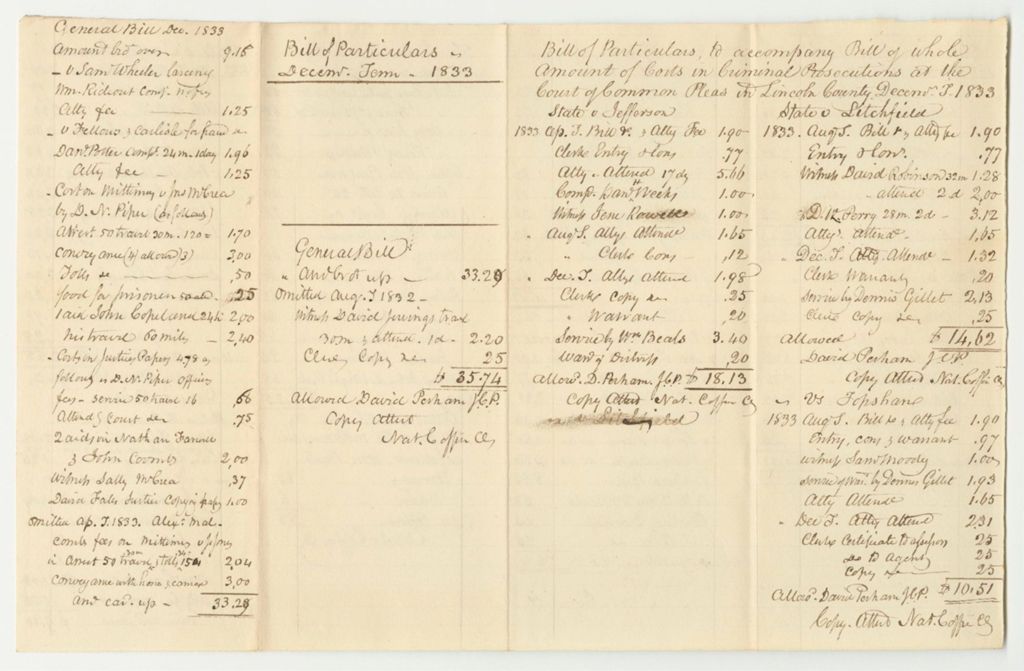 General Bill Dec. 1833
Amount bro't over 9.15
- v Sam Wheeler larceny
Wm. Rideout Comp.
Atty fee 1.25
- v Fellows & Carlisle for fraud &c
Dan. Potter Comp. 24 m. 1 day 1.96
Atty fee - 1.25
- Cost on Mittimus v Jas McCrea
by D. N. Piper (as follows)
Arrest 50 travel 30 m. 120 = 1.70
Conveyance (4) allow'd 3) 3,00
Tolls &c ,50
food for prisoner ,25
1 aid John Copeland 24 h 2,00
his travel 60 mils - 2,40
- Costs in Justices Papers 4.78 as
follows D. N. Piper Officers
fees - service 50 travel 16 ,66
Attend g Court &c .75
2 aids in Nathan
& John Coombs 2,00
Witness Sally McCrea ,37
David Fales Justice Copy of papers 1.00
omitted Ap. T. 1833. Alexr. Mal-
combs fees on Mittimus v Jones
Arrest 50 travel & tolls 154 2,04
Conveyance with horse & carriage 3,00
And car. up - 33.29
Bill of Particulars
Decemr. Term - 1833
General Bill
" Am't bro't up - 33.29
omitted Aug. T 1832 -
Witness David Jenings trav
30 m & attend. 1 d - 2.20
Clerks Copy &c 25
$ 35.74
Allowed David Perham J.C.P.
Copy Attest
Nat. Coffin Clk
Bill of Particulars, to accompany Bill of whole
Amount of Costs in Criminal Prosecutions at the
Court of Common Pleas in Lincoln County, Decemr. T. 1833
State v Jefferson
1833 Ap. T. Bill &c & Atty Fee 1.90
Clerks Entry & Con .77
Atty. Attend 17 dy 5.66
Comp. Danl. Weeks 1.00
Witness Jeme Rowell 1.00
" Aug T. Attys Attende 1.65
" Clerks Cons - ,12
" Dec. T. Attys Attend 1.98
Clerks Copy &c .25
" Warrant .20
Service by Wm. Beals 3.40
Ward of Distress ,20
Allow. D. Perham. J.C.P. $ 18.13
Copy Attest Nat. Coffin Clk
v Litchfield
State v Litchfield
1833. Aug T. Bill &c & Atty fee 1.90
Entry & Con. .77
Witness David Robinson 32 m 1.28
attend 2 d 2,00
D. K. Perry 28 m. 2 d - 3.12
Atty. attende 1,65
" Dec. T. Atty Attende - 1.32
Clerk Warrant ,20
Service by Dennis Gillet 2,13
Clerks Copy &c ,25
Allowed $ 14,62
David Perham J.C.P.
Copy Attest Nat. Coffin Clk
" Vs Topsham
1833 Aug T. Bill &c & atty fee 1.90
Entry, cons & warrant .97
witness Saml Moody 1.00
service of War. by Dennis Gillet 1.93
Atty Attende 1.65
" Dec T. Atty Attend 2.31
Clerks Certificate to assessors 25
do to Agent 25
Copy &c 25
Allow. David Perham J.C.P. $ 10.51
Copy. Attest Nat. Coffin Clk